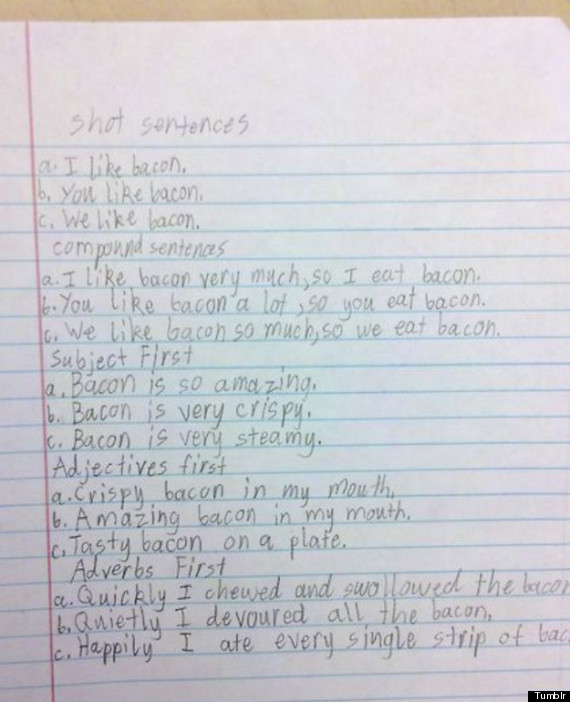 shot sentences
a. I like bacon.
b. You like bacon.
c. We like bacon.
compound sentences
a. I like bacon very much, so I eat bacon.
b. You like bacon a lot, so you eat bacon.
c. We like bacon so much, so we eat bacon.
Subject First
a. Bacon is so amazing.
b. Bacon is very crispy.
c. Bacon is very steamy.
Adjectives first
a. Crispy bacon in my mouth.
b. Amazing bacon in my mouth.
c. Tasty bacon on a plate.
Adverbs First
a. Quickly I chewed and swollowed the bacon
b. Quietly I devoured all the bacon.
c. Happily I ate every single strip of bac
Tumblr